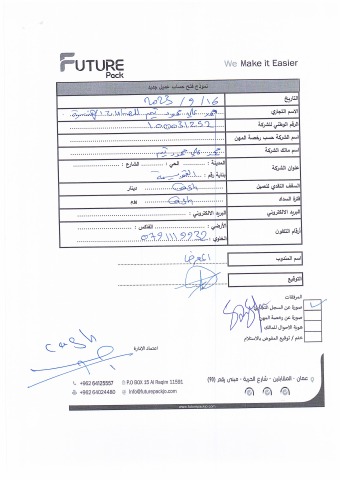 FUTURE
Pack
We Make it Easier
نموذج فتح حساب عميل جديد
التاريخ 2023 / 9 / 16
الاسم التجاري
الرقم الوطني للشركة 100031252
اسم الشركة حسب رخصة المهن
اسم مالك الشركة
عنوان الشركة المدينة : الحي : الشارع :
بناية رقم :
السقف النقدي للعميل Cash دينار
فترة السداد Cash يوم
البريد الالكتروني البريد الالكتروني :
أرقام التلفون الأرضي : الفاكس :
الخلوي : 0791119932
اسم المندوب
التوقيع
المرفقات
صورة عن السجل التجاري
صورة عن رخصة المهن
هوية الاحوال للمالك
ختم / توقيع المفوض بالاستلام
cash
اعتماد الادارة
عمان - المقابلين - شارع الحرية - مبنى رقم (99)
+962 64125557
P.O BOX 15 Al Raqim 11591
+962 64024480
Info@futurepackjo.com
www.futurepackjo.com